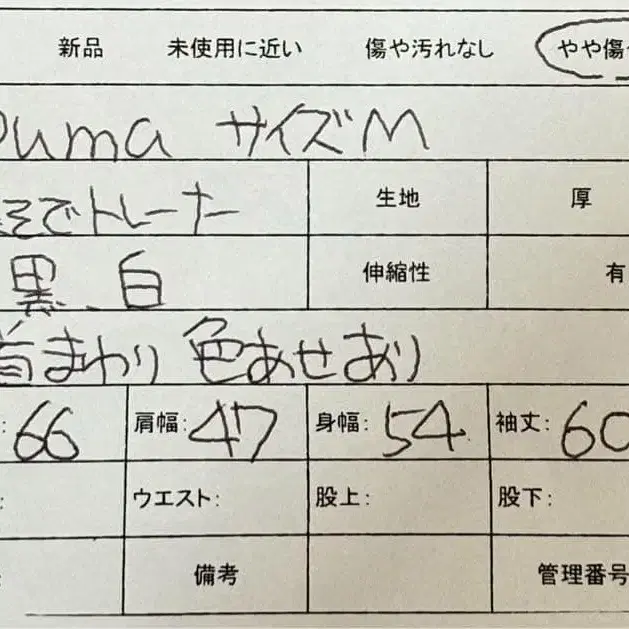 新品 未使用に近い 傷や汚れなし やや傷
Puma サイズM
そでトレーナー 生地 厚
黒、白 伸縮性 有
首まわり 色あせあり
: 66 肩幅: 47 身幅: 54 袖丈: 60
: ウエスト: 股上: 股下:
備考 管理番号